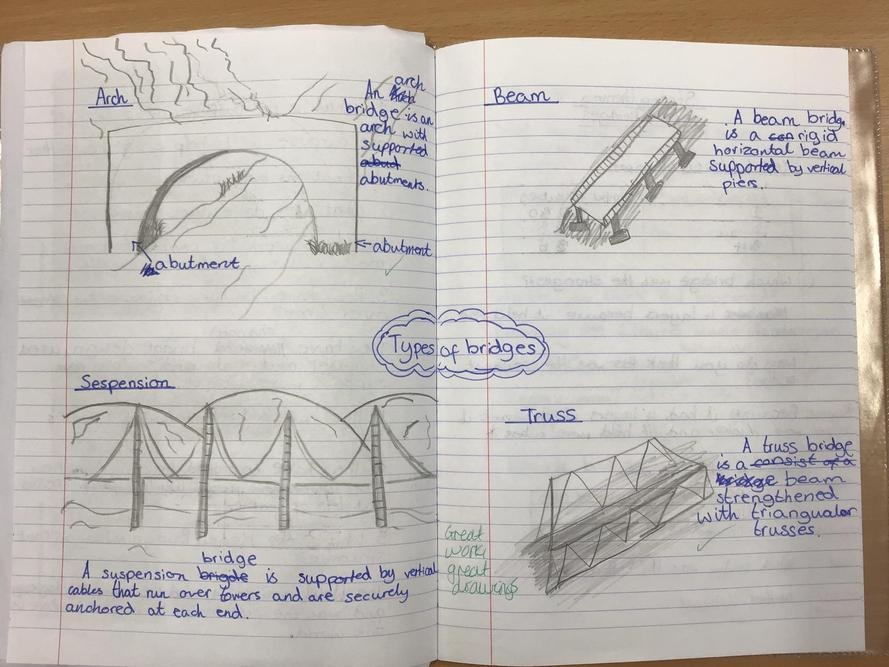 Arch
An arch
bridge is an
arch with
supported
abud
abutments.
abutment
abutment
Beam
A beam bridge
is a con rigid
horizontal beam
supported by vertical
piers.
Types of bridges
Sespension
bridge
A suspension brigde is supported by vertical
cables that run over towers and are securely
anchored at each end.
Truss
A truss bridge
is a consist of a
bridge beam
strengthened
with triangualar
trusses.
Great
work
great
drawings